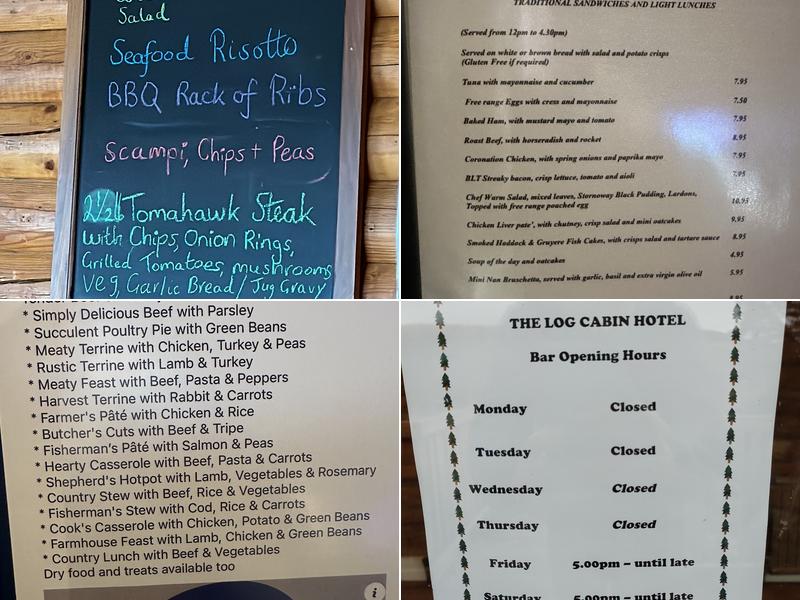 Salad
Seafood Risotto
BBQ Rack of Ribs
Scampi, Chips + Peas
2½lb Tomahawk Steak
with Chips, Onion Rings,
Grilled Tomatoes, mushrooms
Veg, Garlic Bread / Jug Gravy
TRADITIONAL SANDWICHES AND LIGHT LUNCHES
(Served from 12pm to 4.30pm)
Served on white or brown bread with salad and potato crisps
(Gluten Free if required)
Tuna with mayonnaise and cucumber 7.95
Free range Eggs with cress and mayonnaise 7.50
Baked Ham, with mustard mayo and tomato 7.95
Roast Beef, with horseradish and rocket 8.95
Coronation Chicken, with spring onions and paprika mayo 7.95
BLT Streaky bacon, crisp lettuce, tomato and aioli 7.95
Chef Warm Salad, mixed leaves, Stornoway Black Pudding, Lardons,
Topped with free range poached egg 10.95
Chicken Liver pate', with chutney, crisp salad and mini oatcakes 9.95
Smoked Haddock & Gruyere Fish Cakes, with crisps salad and tartare sauce 8.95
Soup of the day and oatcakes 4.95
Mini Nan Bruschetta, served with garlic, basil and extra virgin olive oil 5.95
* Simply Delicious Beef with Parsley
* Succulent Poultry Pie with Green Beans
* Meaty Terrine with Chicken, Turkey & Peas
* Rustic Terrine with Lamb & Turkey
* Meaty Feast with Beef, Pasta & Peppers
* Harvest Terrine with Rabbit & Carrots
* Farmer's Pâté with Chicken & Rice
* Butcher's Cuts with Beef & Tripe
* Fisherman's Pâté with Salmon & Peas
* Hearty Casserole with Beef, Pasta & Carrots
* Shepherd's Hotpot with Lamb, Vegetables & Rosemary
* Country Stew with Beef, Rice & Vegetables
* Fisherman's Stew with Cod, Rice & Carrots
* Cook's Casserole with Chicken, Potato & Green Beans
* Farmhouse Feast with Lamb, Chicken & Green Beans
* Country Lunch with Beef & Vegetables
Dry food and treats available too
THE LOG CABIN HOTEL
Bar Opening Hours
Monday Closed
Tuesday Closed
Wednesday Closed
Thursday Closed
Friday 5.00pm – until late
Saturday 5.00pm – until late